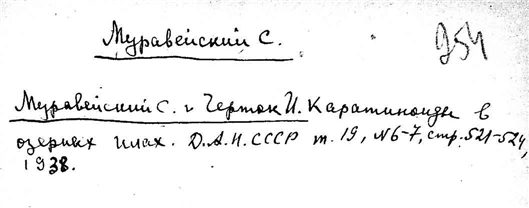 Муравейский С.
954
Муравейский С. и Черток И. Каратиноиды в
озерных илах. Д.А.Н. СССР т. 19, №6-7, стр. 521-524,
1938.